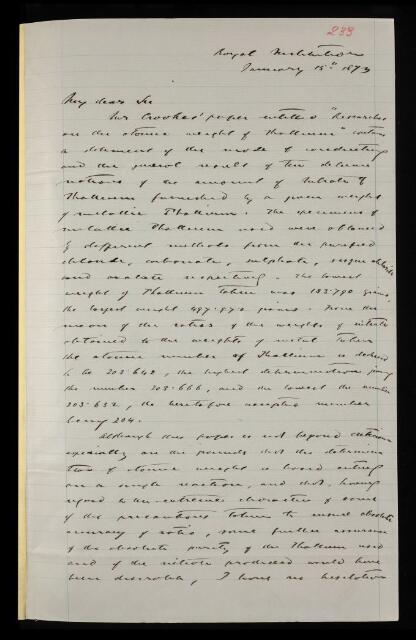 233
Royal Institution
January 15th 1873
My dear Sir
Mr Crookes' paper entitled "Researches
on the atomic weight of Thallium" contains
a statement of the mode of conducting
and the general result of ten determi-
nations of the amount of nitrate of
Thallium furnished by a given weight
of metallic Thallium. The specimens of
metallic Thallium used were obtained
by different methods from the purified
chloride, carbonate, sulphate, chloride
and oxalate respectively. The lowest
weight of Thallium taken was 183.790 grains,
the largest weight 497.972 grains. From the
mean of the ratios of the weights of nitrate
obtained to the weights of metal taken
the atomic number of Thallium is deduced
to be 203.642, the highest determination giving
the number 203.666, and the lowest the number
203.632, the heretofore accepted number
being 204.
Although this paper is not beyond criticism
especially on the grounds that the determina-
tion of atomic weight is based entirely
on a single reaction, and that, having
regard to the extreme character of some
of the precautions taken to ensure absolute
accuracy of ratio, some further assurance
of the absolute purity of the Thallium used
and of the nitrate produced would have
been desirable, I have no hesitation